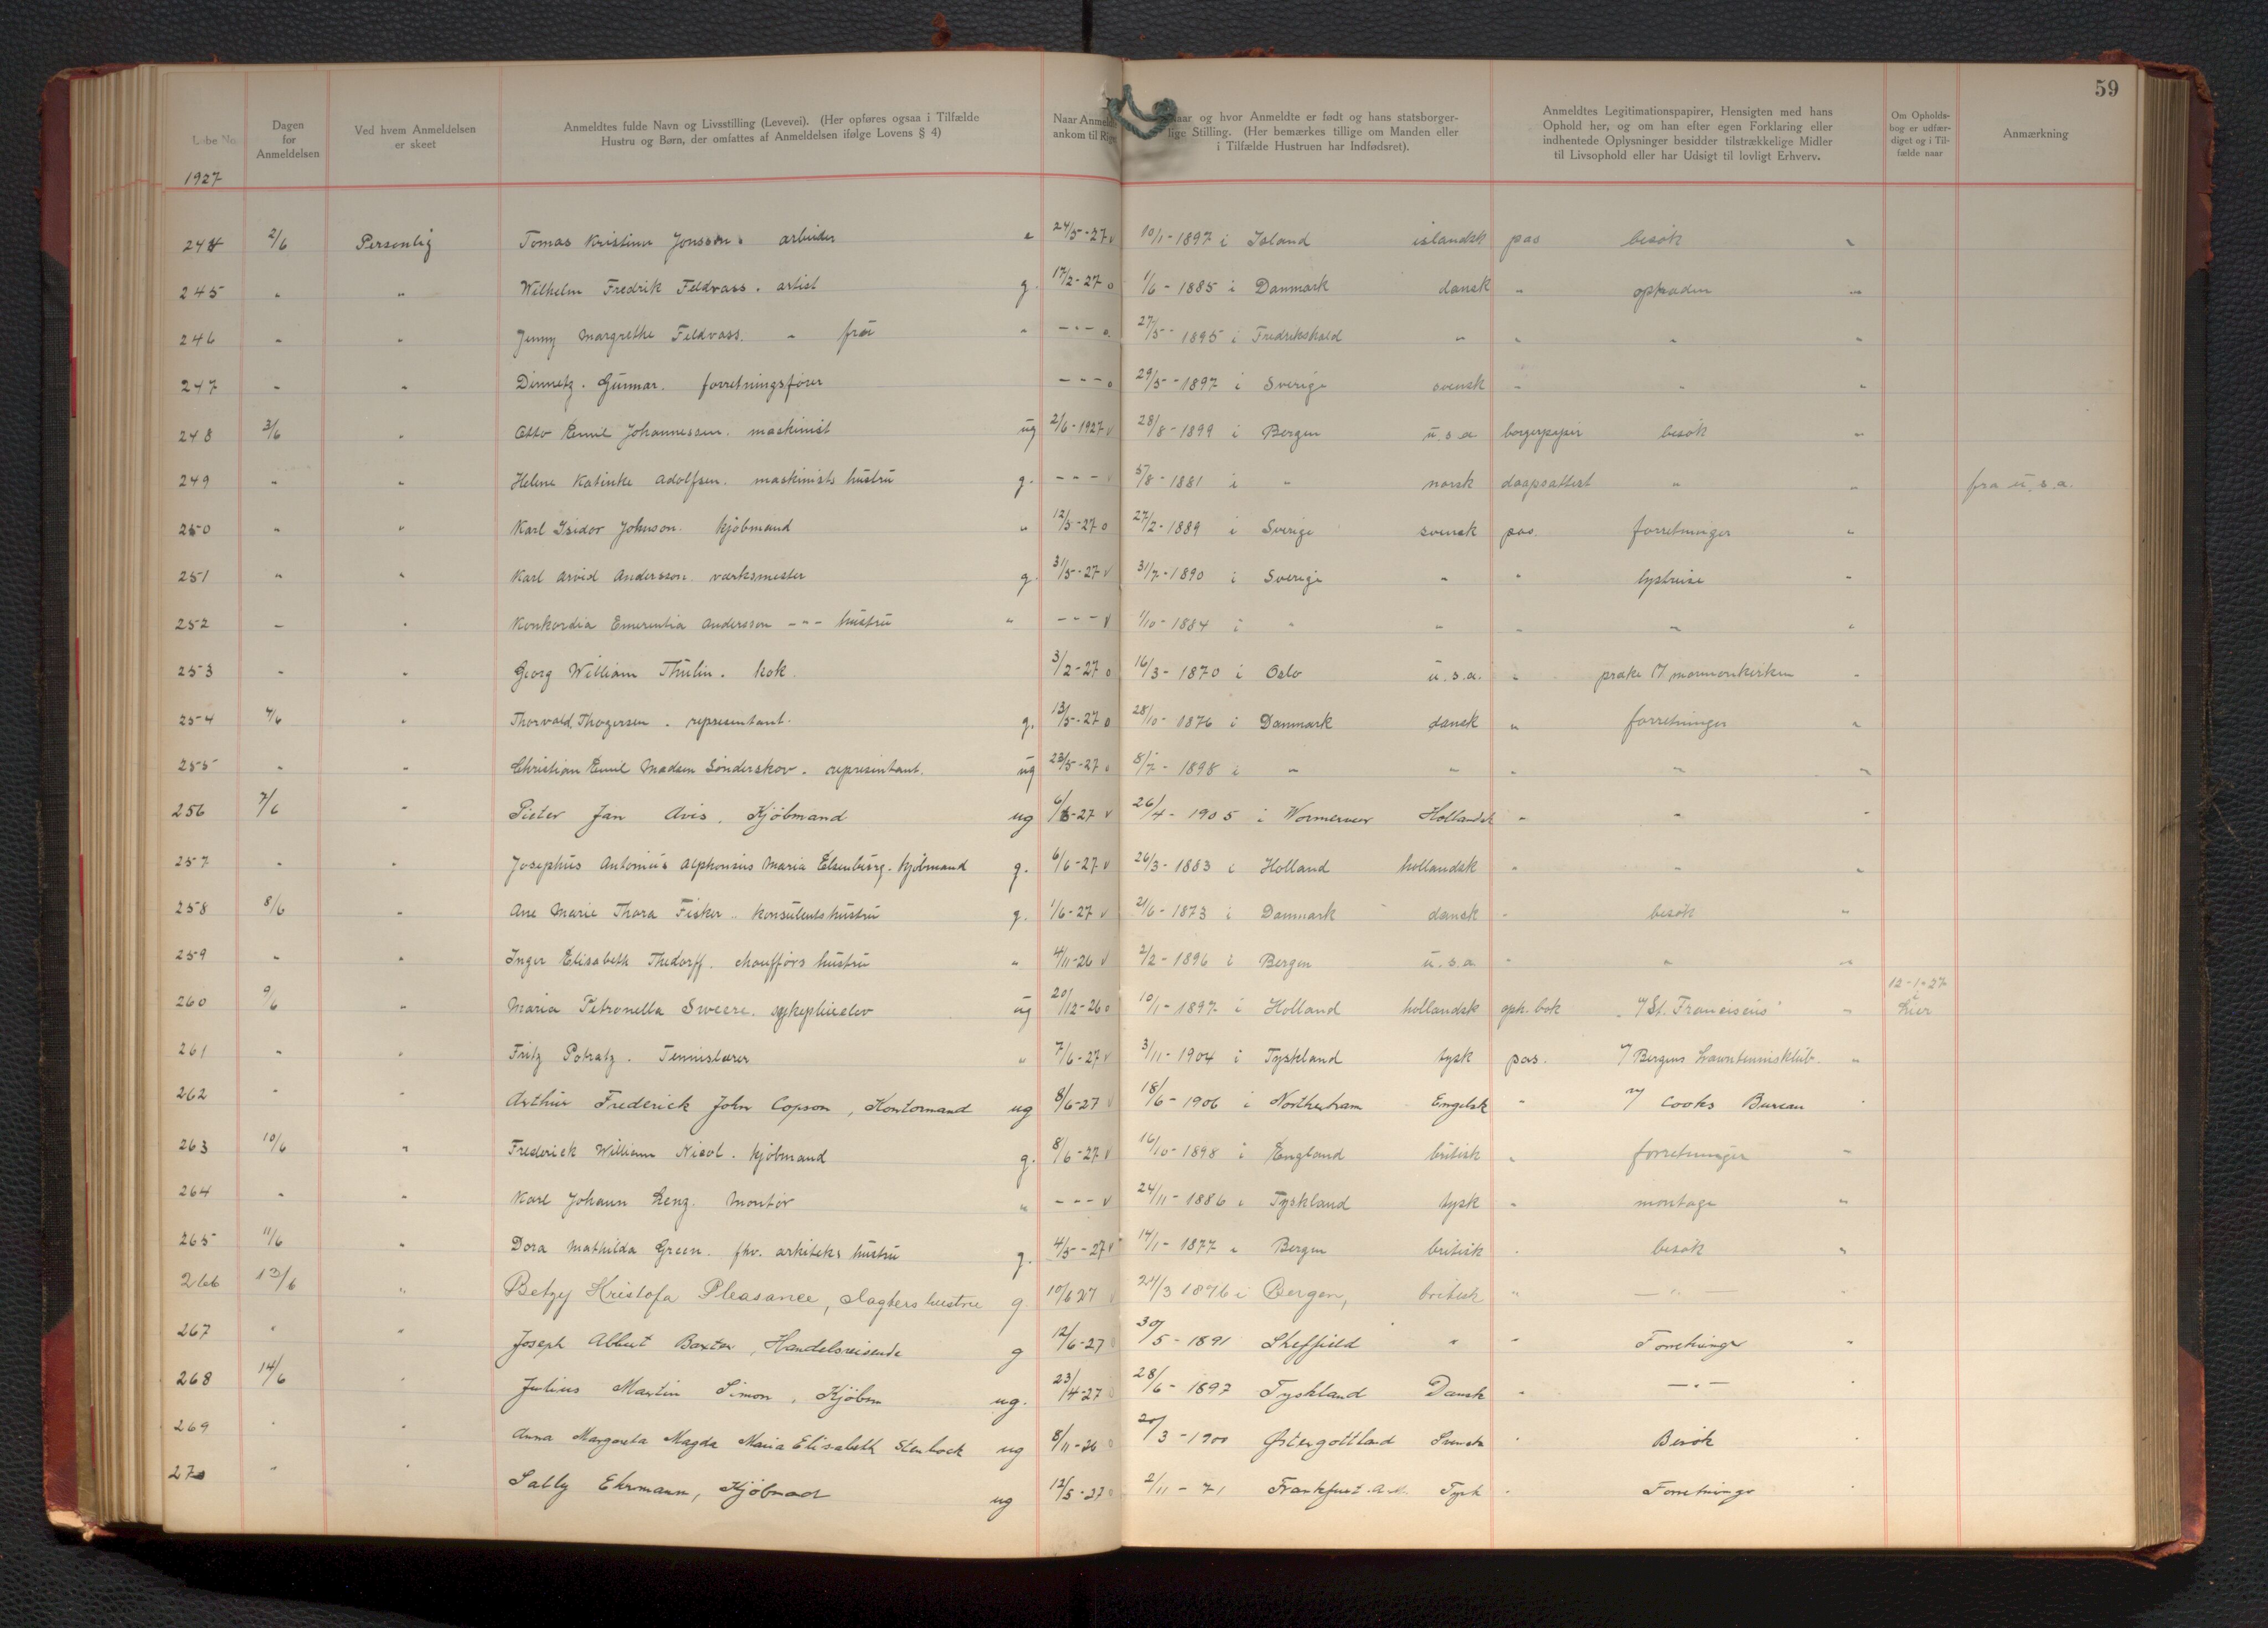 59
Løbe No.
Dagen for Anmeldelsen
Ved hvem Anmeldelsen er skeet
Anmeldtes fulde Navn og Livsstilling (Levevei). (Her opføres ogsaa i Tilfælde Hustru og Børn, der omfattes af Anmeldelsen ifølge Lovens § 4)
Naar Anmeldte ankom til
og hvor Anmeldte er født og hans statsborgerlige Stilling. (Her bemærkes tillige om Manden eller i Tilfælde Hustruen har Indfødsret).
Anmeldtes Legitimationspapirer, Hensigten med hans Ophold her, og om han efter egen Forklaring eller indhentede Oplysninger besidder tilstrækkelige Midler til Livsophold eller har Udsigt til lovligt Erhverv.
Om Opholdsbog er udfærdiget og i Tilfælde naar
Anmærkning
1927
244 2/6 Personlig Tomas Kristinn Jonsson. arbeider " 24/5-27 v 10/1-1897 i Island islandsk pas besøk "
245 " " Wilhelm Fredrik Feldvass. artist g. 17/2-27 o 1/6-1885 i Danmark dansk " optræden "
246 " " Jenny Margrethe Feldvass. " frü " -"- o 27/5-1895 i Fredrikshald " " " "
247 " " Dinnetz. Gunnar. forretningsfører -"- o 29/5-1897 i Sverige svensk " " "
248 3/6 " Otto Emil Johannessen. maskinist ug 2/6-1927 v 28/8-1899 i Bergen u.s.a borgerpapir besøk "
249 " " Helene Katinke Adolfsen. maskinists hustru g. -"- v 5/8-1881 i " norsk daapsattest " " fra u.s.a.
250 " " Karl Isidor Johnson. kjøbmand " 12/5-27 o 27/2-1889 i Sverige svensk pas. forretninger "
251 " " Karl Arvid Andersson. værksmester g. 31/5-27 v 31/7-1890 i Sverige " " lystreise "
252 " " Konkordia Emerentia Andersson -"- hustru " -"- v 1/10-1884 i " " " " "
253 " " Georg William Thulin. kok. 3/2-27 o 16/3-1870 i Oslo u.s.a. " præke v/ mormonkirken "
254 4/6 " Thorvald Thogersen. representant. g. 13/5-27 o 28/10-1876 i Danmark dansk " forretninger "
255 " " Christian Emil Madsen Sønderskov. representant. ug 23/5-27 o 8/7-1898 i " " " " "
256 7/6 " Pieter Jan Avis. Kjöbmand ug 6/6-27 v 26/4-1905 i Wormerveer Hollandsk " " "
257 " " Josephus Antonius Alphonsus Maria Elsenburg. kjøbmand g. 6/6-27 v 26/3-1883 i Holland hollandsk " " "
258 8/6 " Ane Marie Thora Fisker. konsulents hustru g. 1/6-27 v 21/6-1873 i Danmark dansk " besøk "
259 " " Inger Elisabeth Thedorff. chaufførs hustru " 4/11-26 v 2/2-1896 i Bergen u.s.a " " "
260 9/6 " Maria Petronella Sweere. sykepleielev ug 20/12-26 o 10/1-1897 i Holland hollandsk oph. bok v/ St. Franciscus " 12-1-27 i Lier
261 " " Fritz Potratz. Tennislærer " 7/6-27 v 3/11-1904 i Tyskland tysk pas. v/ Bergens Lawntennisklub. "
262 " " Arthur Frederick John Copson, Kontormand ug 8/6-27 v 18/6-1906 i Engelsk " v/ Cooks Bureau "
263 10/6 " Frederick William Nicol. kjøbmand g. 8/6-27 v 16/10-1898 i England britisk " forretninger "
264 " " Karl Johann Lenz. Montør " -"- v 24/11-1886 i Tyskland tysk " montage "
265 11/6 " Dora Mathilda Green. fhv. arkiteks hustru g. 4/5-27 v 14/1-1877 i Bergen britisk " besøk "
266 13/6 " Betzy Kristofa Pleasance, slagters hustru g 10/6 27 v 24/3 1876 i Bergen, britisk " -"- "
267 " " Joseph Albert Baxter, Handelsreisende g 12/6-27 o 30/5-1891 Sheffield " " Forretninger "
268 14/6 " Julius Martin Simon, Kjöbm ug. 23/4-27 o 28/6-1897 Tyskland Dansk " -"- "
269 " " Anna Margareta Magda Maria Elisabeth Stenbock ug 8/11-26 o 20/3-1900 Østergottland Svensk " Besök "
270 " " Sally Ehrmann, Kjöbmad ug 12/5-27 o 2/11-71 Frankfurt. a.M. Tysk " Forretninger "